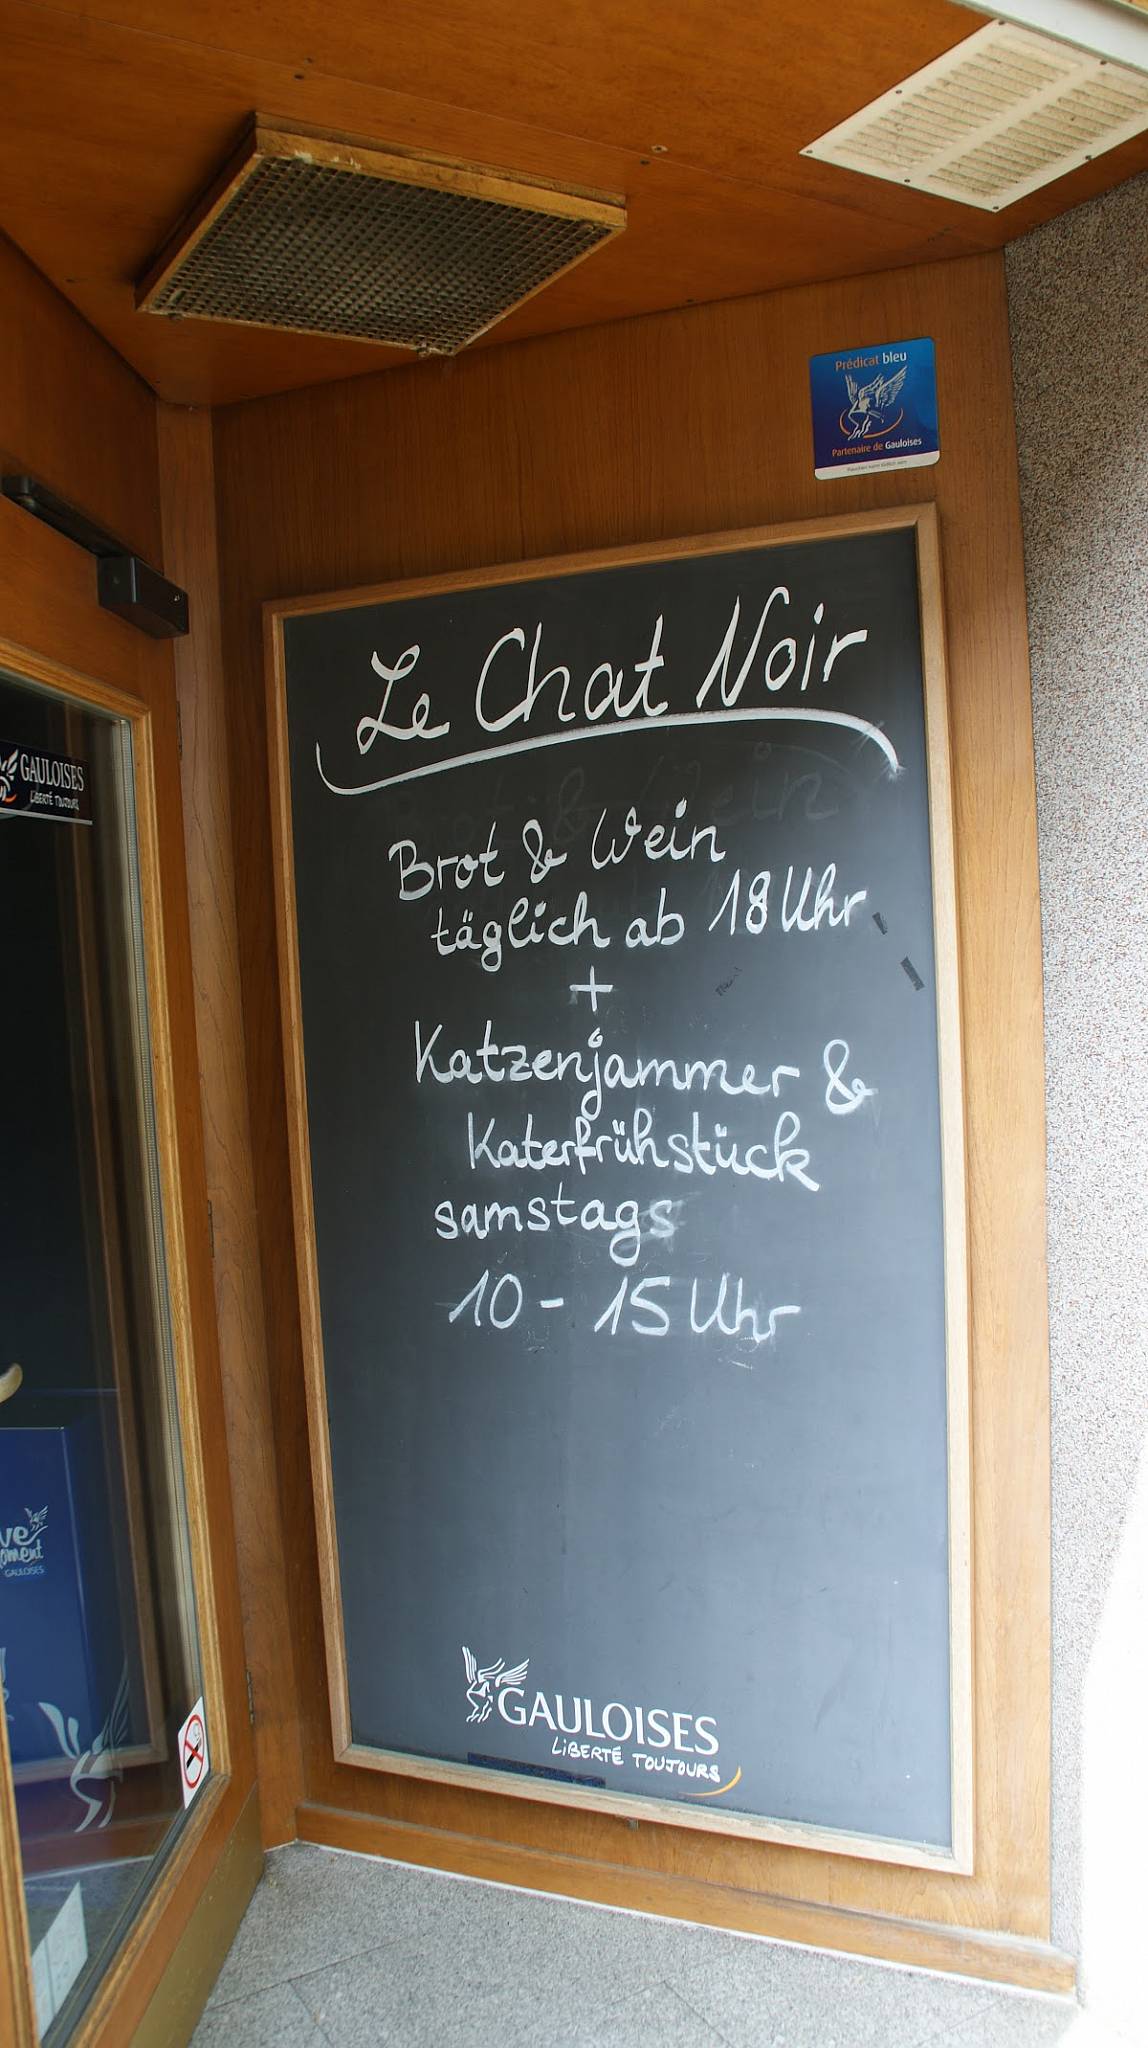 Prédicat bleu
Partenaire de Gauloises
Le Chat Noir
Brot & Wein
täglich ab 18 Uhr
+
Katzenjammer &
Katerfrühstück
samstags
10 - 15 Uhr
GAULOISES
LIBERTÉ TOUJOURS
GAULOISES
LIBERTÉ TOUJOURS
GAULOISES